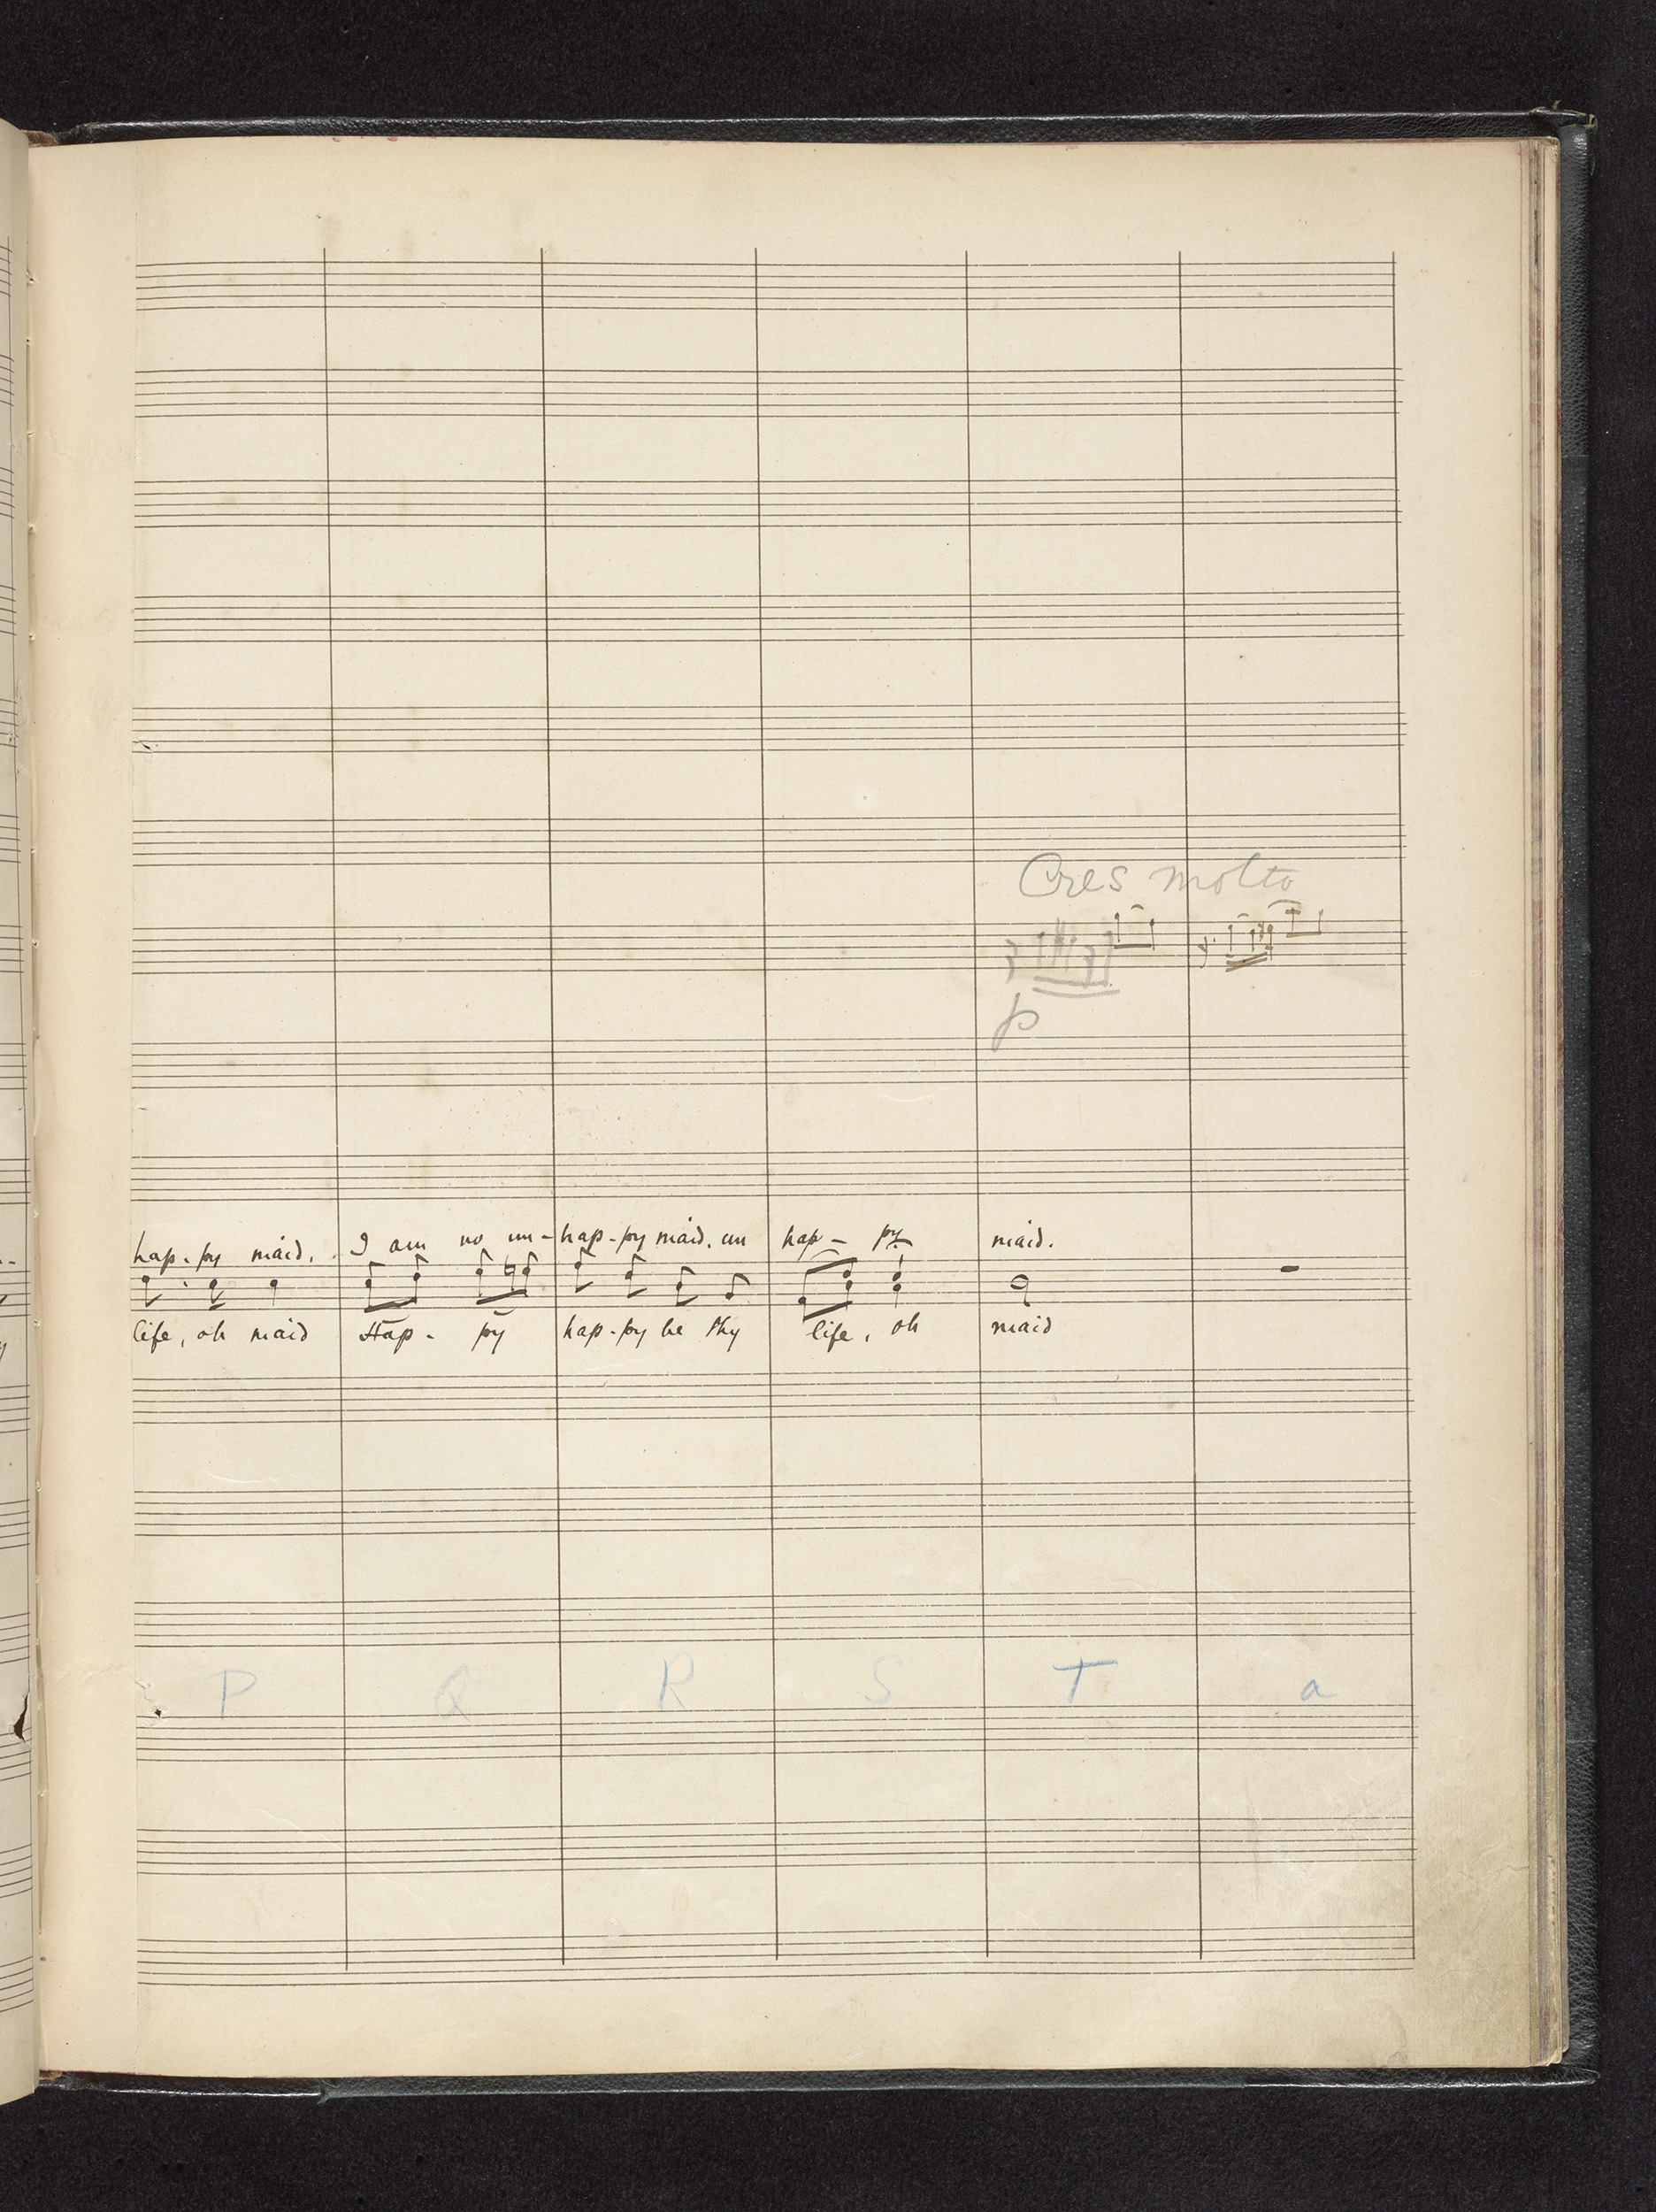 Cres molto
p
hap-py maid. I am no un-hap-py maid. un hap-py maid.
life, oh maid Hap-py hap-py be thy life, oh maid
P Q R S T a